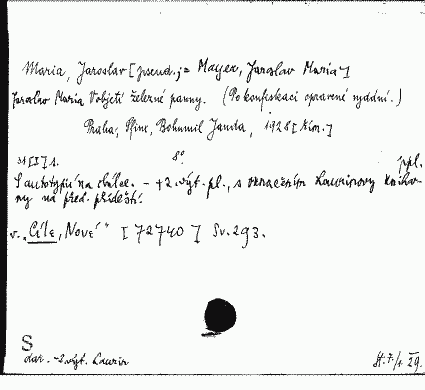 Maria, Jaroslav [pseud. j= Mayer, Jaroslav Maria]
Jaroslav Maria V objetí železné panny. (Po konfiskaci opravené vydání.)
Praha, Bohumil Janda, 1928 [tím.]
31 [I] s. 8° ppl.
S autotypií na obálce. - +2. výt. pl., s označením Laurinovy knihovny na před. přídeští.
v. „Cíle, Nové" [72740] Sv. 293.
S
dar. -2 výt. Laurin
29.